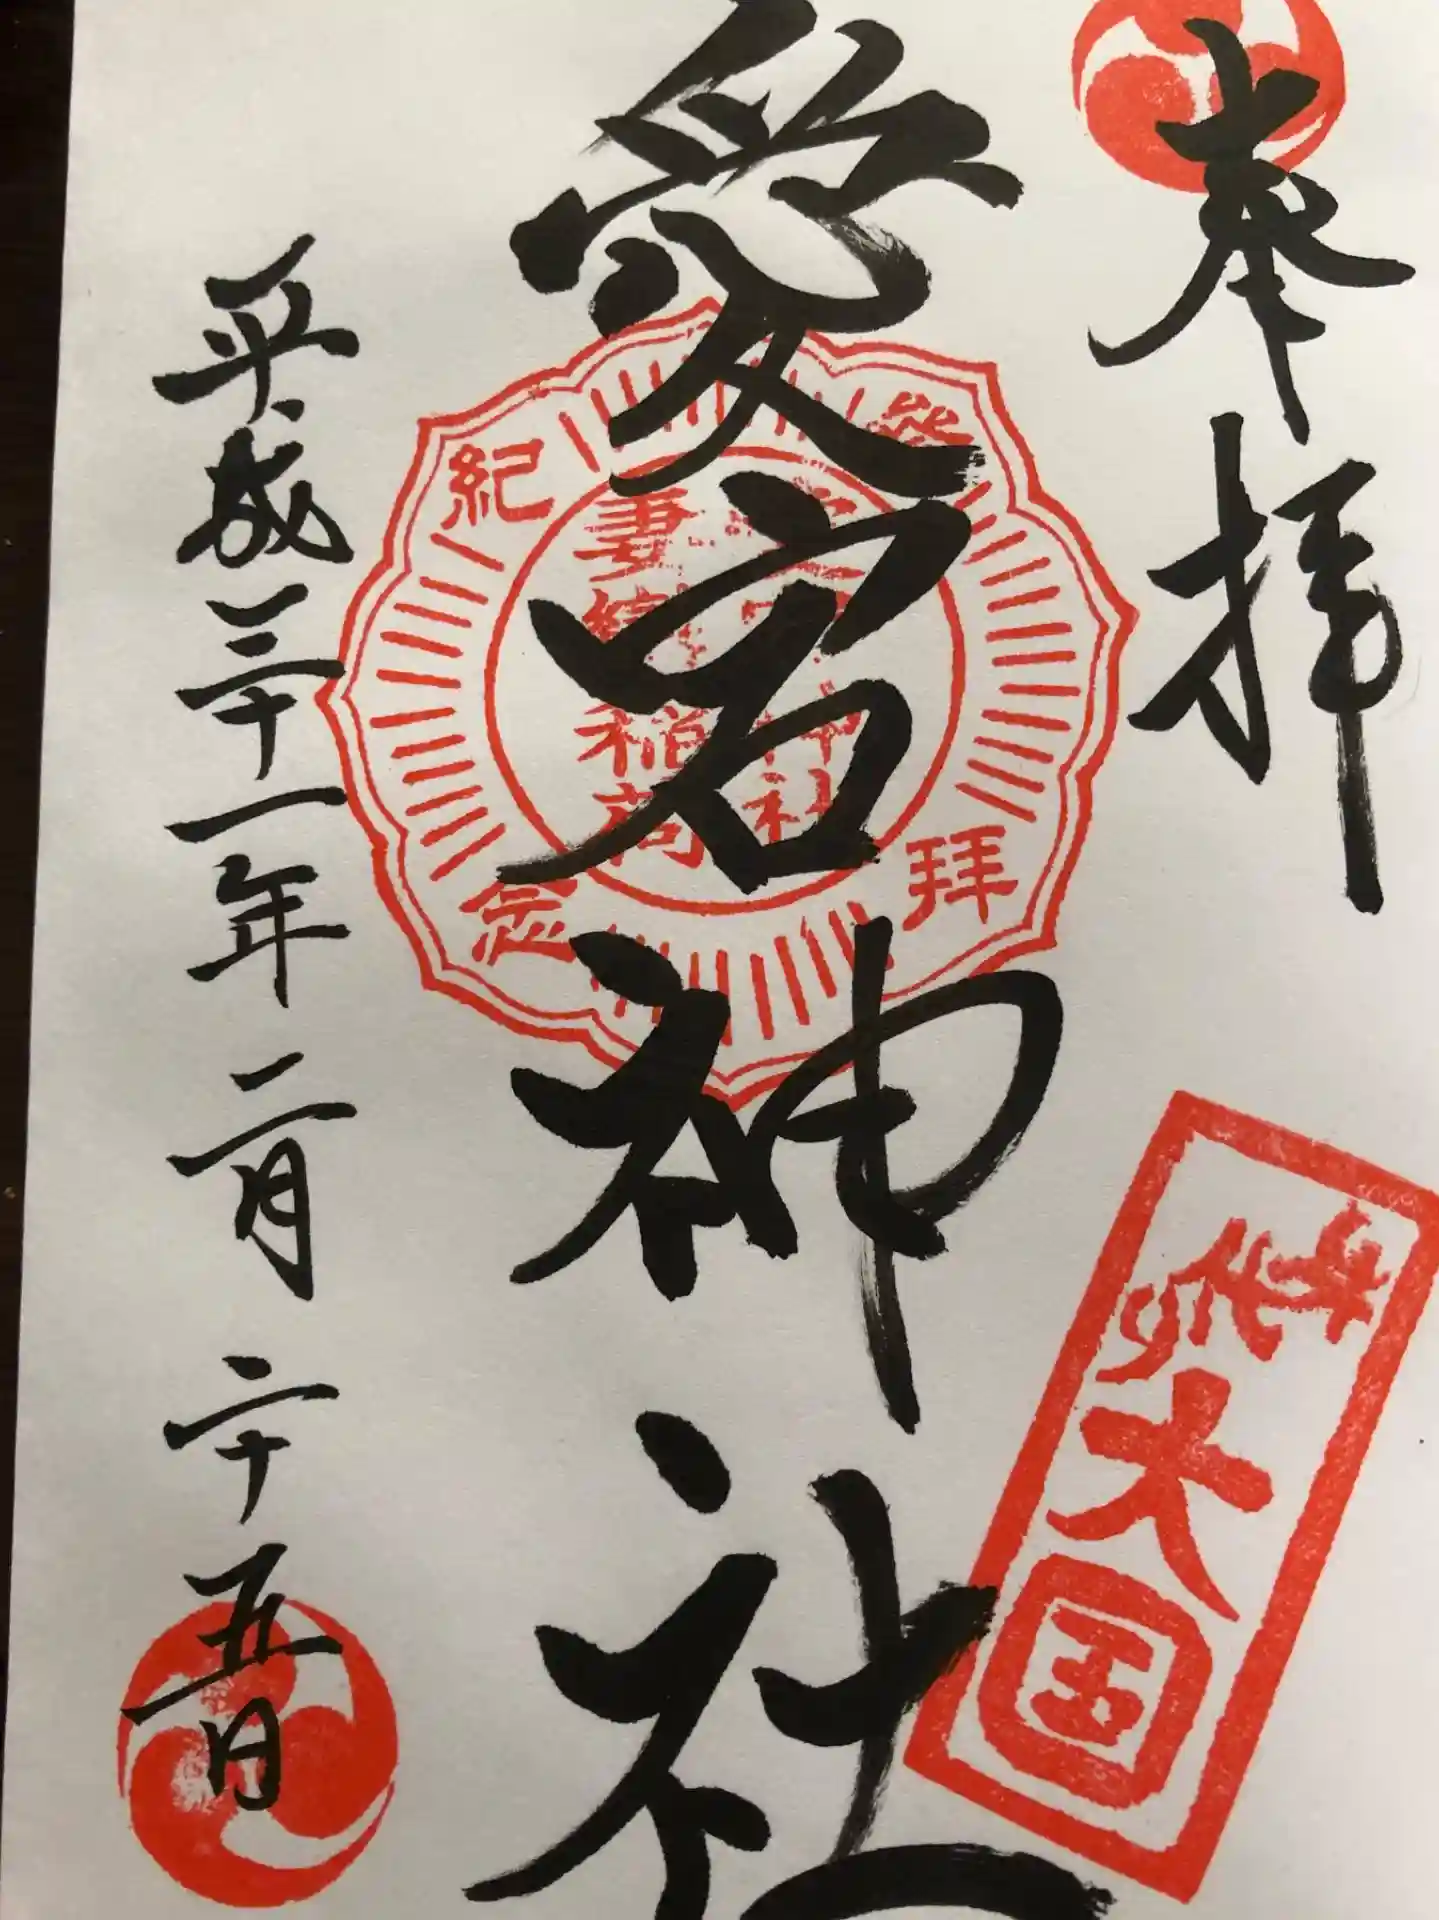 奉拝
愛宕神社
平成三十一年二月二十五日
参拝
紀念
神社
妻結稲荷
千代大国